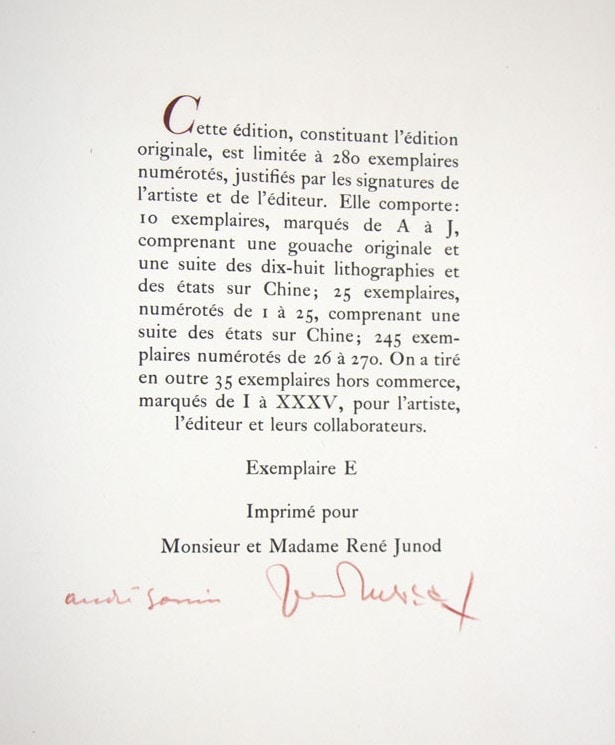 Cette édition, constituant l'édition
originale, est limitée à 280 exemplaires
numérotés, justifiés par les signatures de
l'artiste et de l'éditeur. Elle comporte:
10 exemplaires, marqués de A à J,
comprenant une gouache originale et
une suite des dix-huit lithographies et
des états sur Chine; 25 exemplaires,
numérotés de 1 à 25, comprenant une
suite des états sur Chine; 245 exem-
plaires numérotés de 26 à 270. On a tiré
en outre 35 exemplaires hors commerce,
marqués de I à XXXV, pour l'artiste,
l'éditeur et leurs collaborateurs.
Exemplaire E
Imprimé pour
Monsieur et Madame René Junod
andré